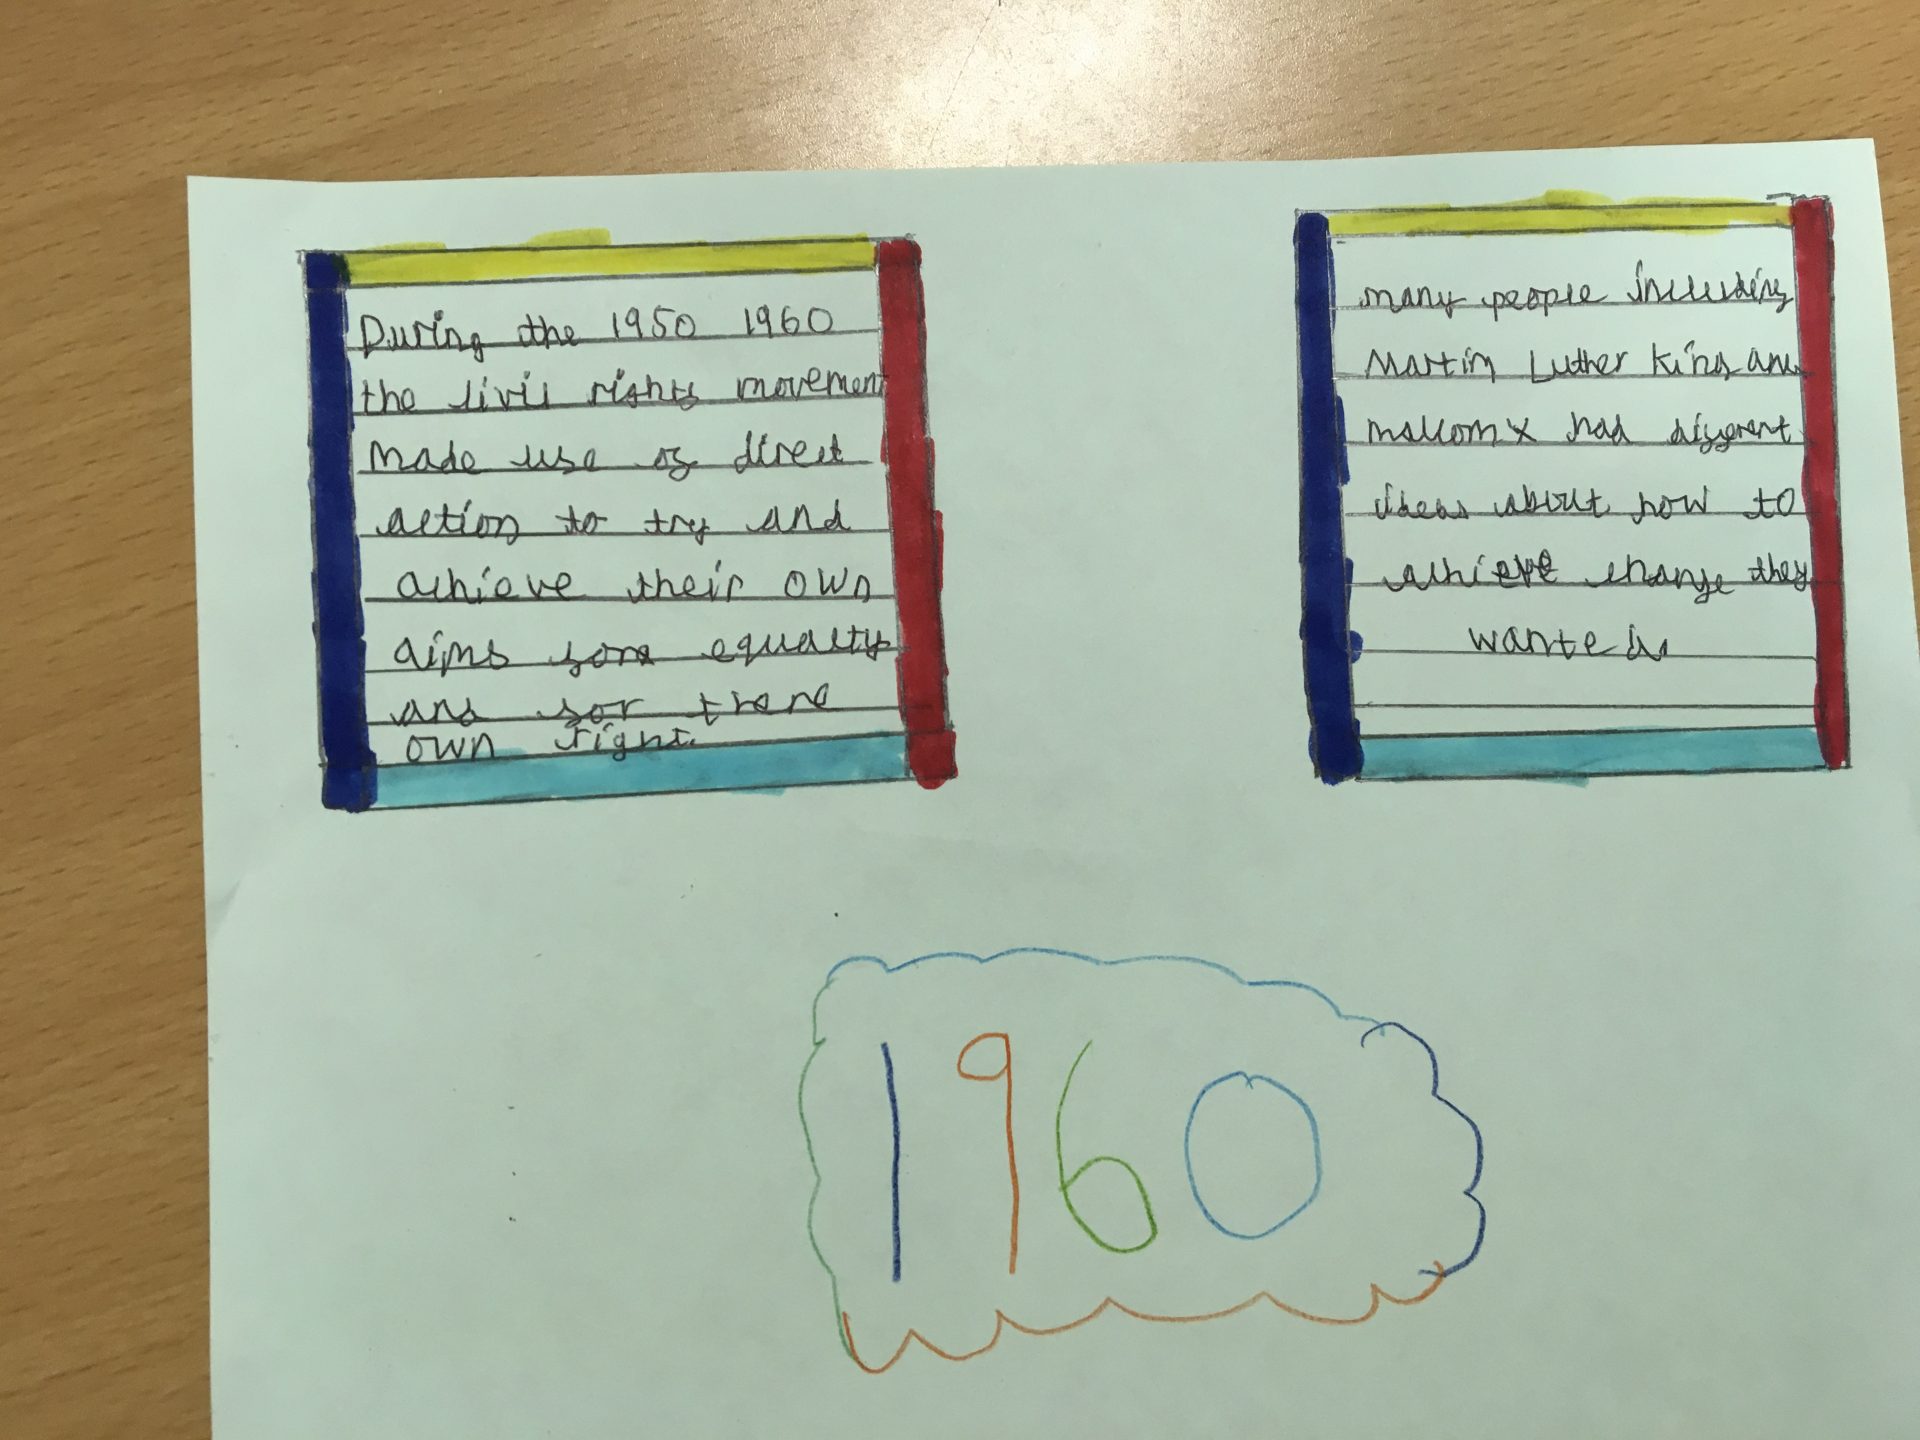 During the 1950 1960
the civil rights movement
made use of direct
action to try and
achieve their own
aims for equalty
and for there
own right.
many people including
Martin Luther King and
malcom x had different
ideas about how to
achieve change they
wanted
1960